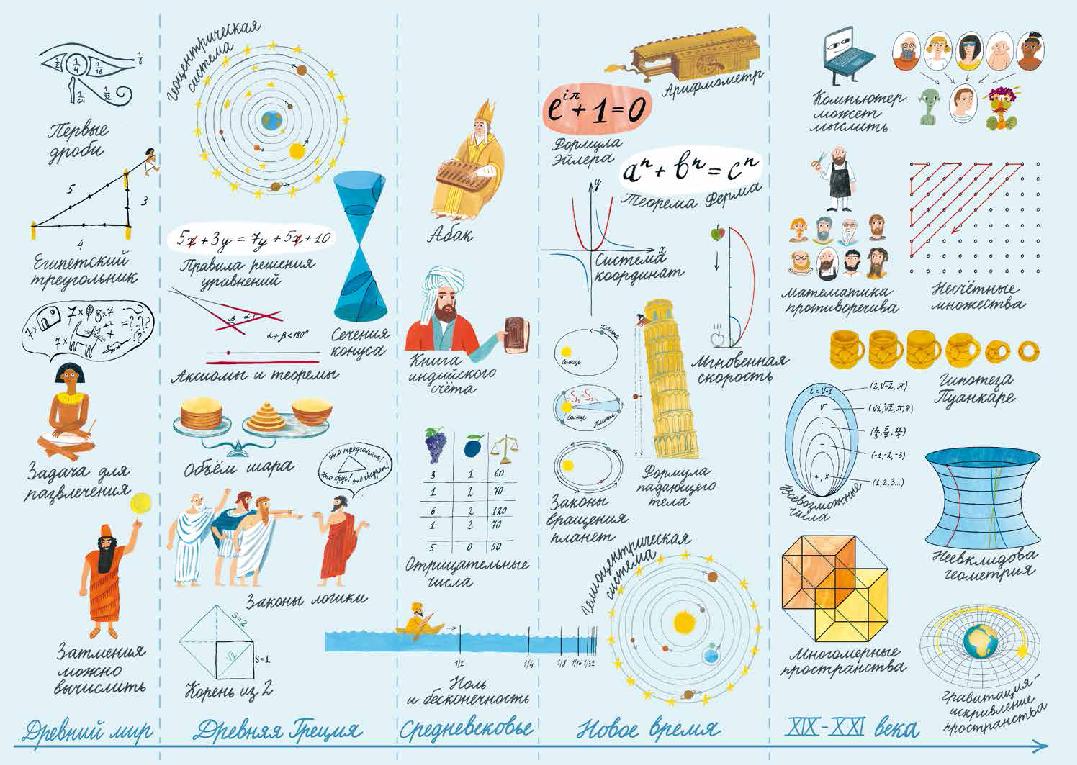 Первые
дроби
5
3
4
Египетский
треугольник
Задача для
развлечения
Затмения
можно
вычислить
Древний мир
Геоцентрическая
система
5x + 3y = 7y + 5x + 10
Правила решения
уравнений
Сечения
конуса
Аксиомы и теоремы
Объём шара
Законы логики
S=2
√2
S=1
Корень из 2
Древняя Греция
Абак
Книга
индийского
счёта
3 1 60
1 2 70
6 2 120
1 3 70
5 0 50
Отрицательные
числа
1/2 1/4 1/8 1/16 1/32
Ноль
и бесконечность
Средневековье
Арифмометр
e^iπ + 1 = 0
Формула
Эйлера
aⁿ + bⁿ = cⁿ
Теорема Ферма
y
x
Система
координат
Мгновенная
скорость
Солнце
S₁=S₂
Солнце
Законы
вращения
планет
Формула
падающего
тела
Гелиоцентрическая
система
Новое время
Компьютер
может
мыслить
Математика
противоречива
Несчётные
множества
Гипотеза
Пуанкаре
(-1, -2, -3)
(1, 2, 3...)
Всевозможные
числа
Неевклидова
геометрия
Многомерные
пространства
Гравитация-
искривление
пространства
XIX-XXI века